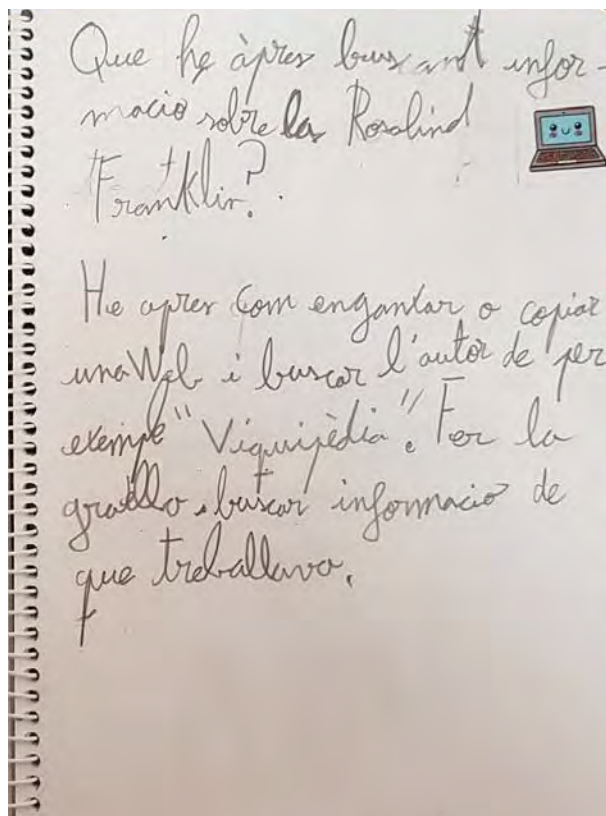 Que he àpres buscant infor-
macio sobre la Rosalind
Franklin?
He apres com engantar o copiar
una Web i buscar l'autor de per
exemple "Viquipèdia". Fer la
graella, buscar informacio de
que treballava.